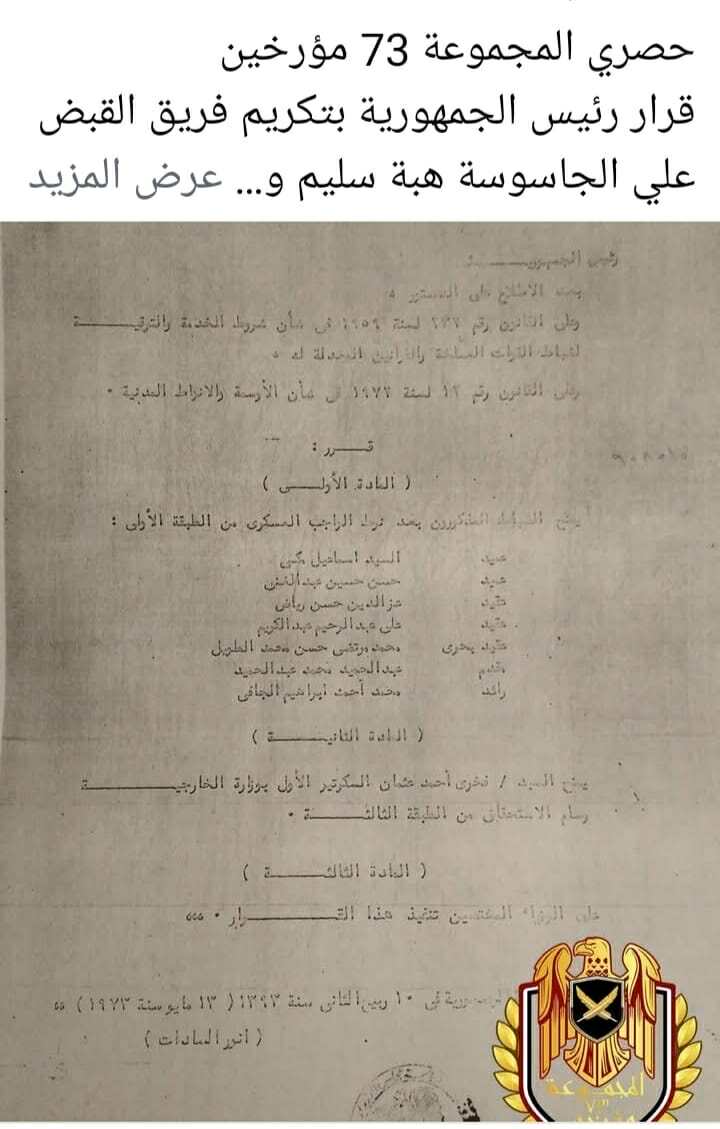 حصري المجموعة 73 مؤرخين
قرار رئيس الجمهورية بتكريم فريق القبض
علي الجاسوسة هبة سليم و... عرض المزيد
رئيس الجمهوريـــــة
بعد الاطلاع على الدستور ٠
وعلى القانون رقم ٢٣٢ لسنة ١٩٥٩ فى شأن شروط الخدمة والترقيـــــة
لضباط القوات المسلحة والقوانين المعدلة له ٠
وعلى القانون رقم ١٢ لسنة ١٩٧٢ فى شأن الأوسمة والانواط المدنية ٠
قـــرر :
( المادة الأولــــى )
يمنح الضباط المذكورون بعد نوط الواجب العسكرى من الطبقة الأولى :
عميد السيد اسماعيل
عميد حسن حسين عبدالغنى
عقيد عزالدين حسن رياض
عقيد على عبدالرحيم عبدالكريم
عقيد بحرى محمد مرتضى حسن محمد الطويل
مقدم عبدالحميد محمد عبدالحميد
رائد محمد أحمد ابراهيم
( المادة الثانيـــــة )
يمنح السيد / فخرى أحمد عثمان السكرتير الأول بوزارة الخارجيـــــة
وسام الاستحقاق من الطبقة الثالثـــــة ٠
( المادة الثالثـــــة )
على الوزراء المختصين تنفيذ هذا القـــــرار ٠
الجمهورية فى ١٠ ربيع الثانى سنة ١٣٩٣ ( ١٣ مايو سنة ١٩٧٣ )
( انور السادات )
المجموعة
٧٣
مؤرخين